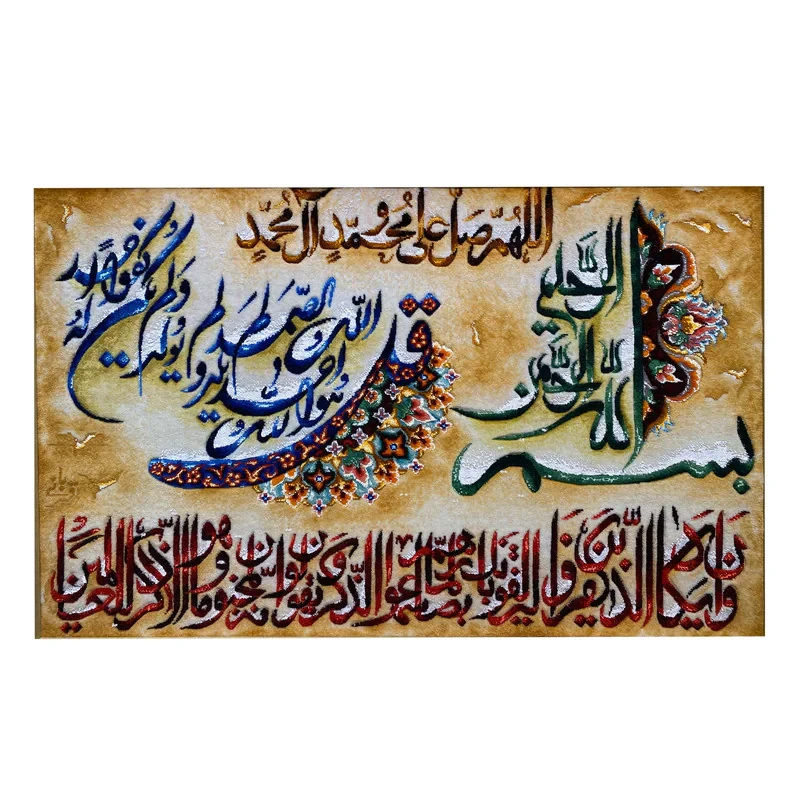 اللهم صل علی محمد و آل محمد
بسم الله الرحمن الرحیم
قل هو الله احد الله الصمد لم یلد و لم یولد و لم یکن له کفوا احد
و ان یکاد الذین کفروا لیزلقونک بابصارهم لما سمعوا الذکر و یقولون انه لمجنون و ما هو الا ذکر للعالمین